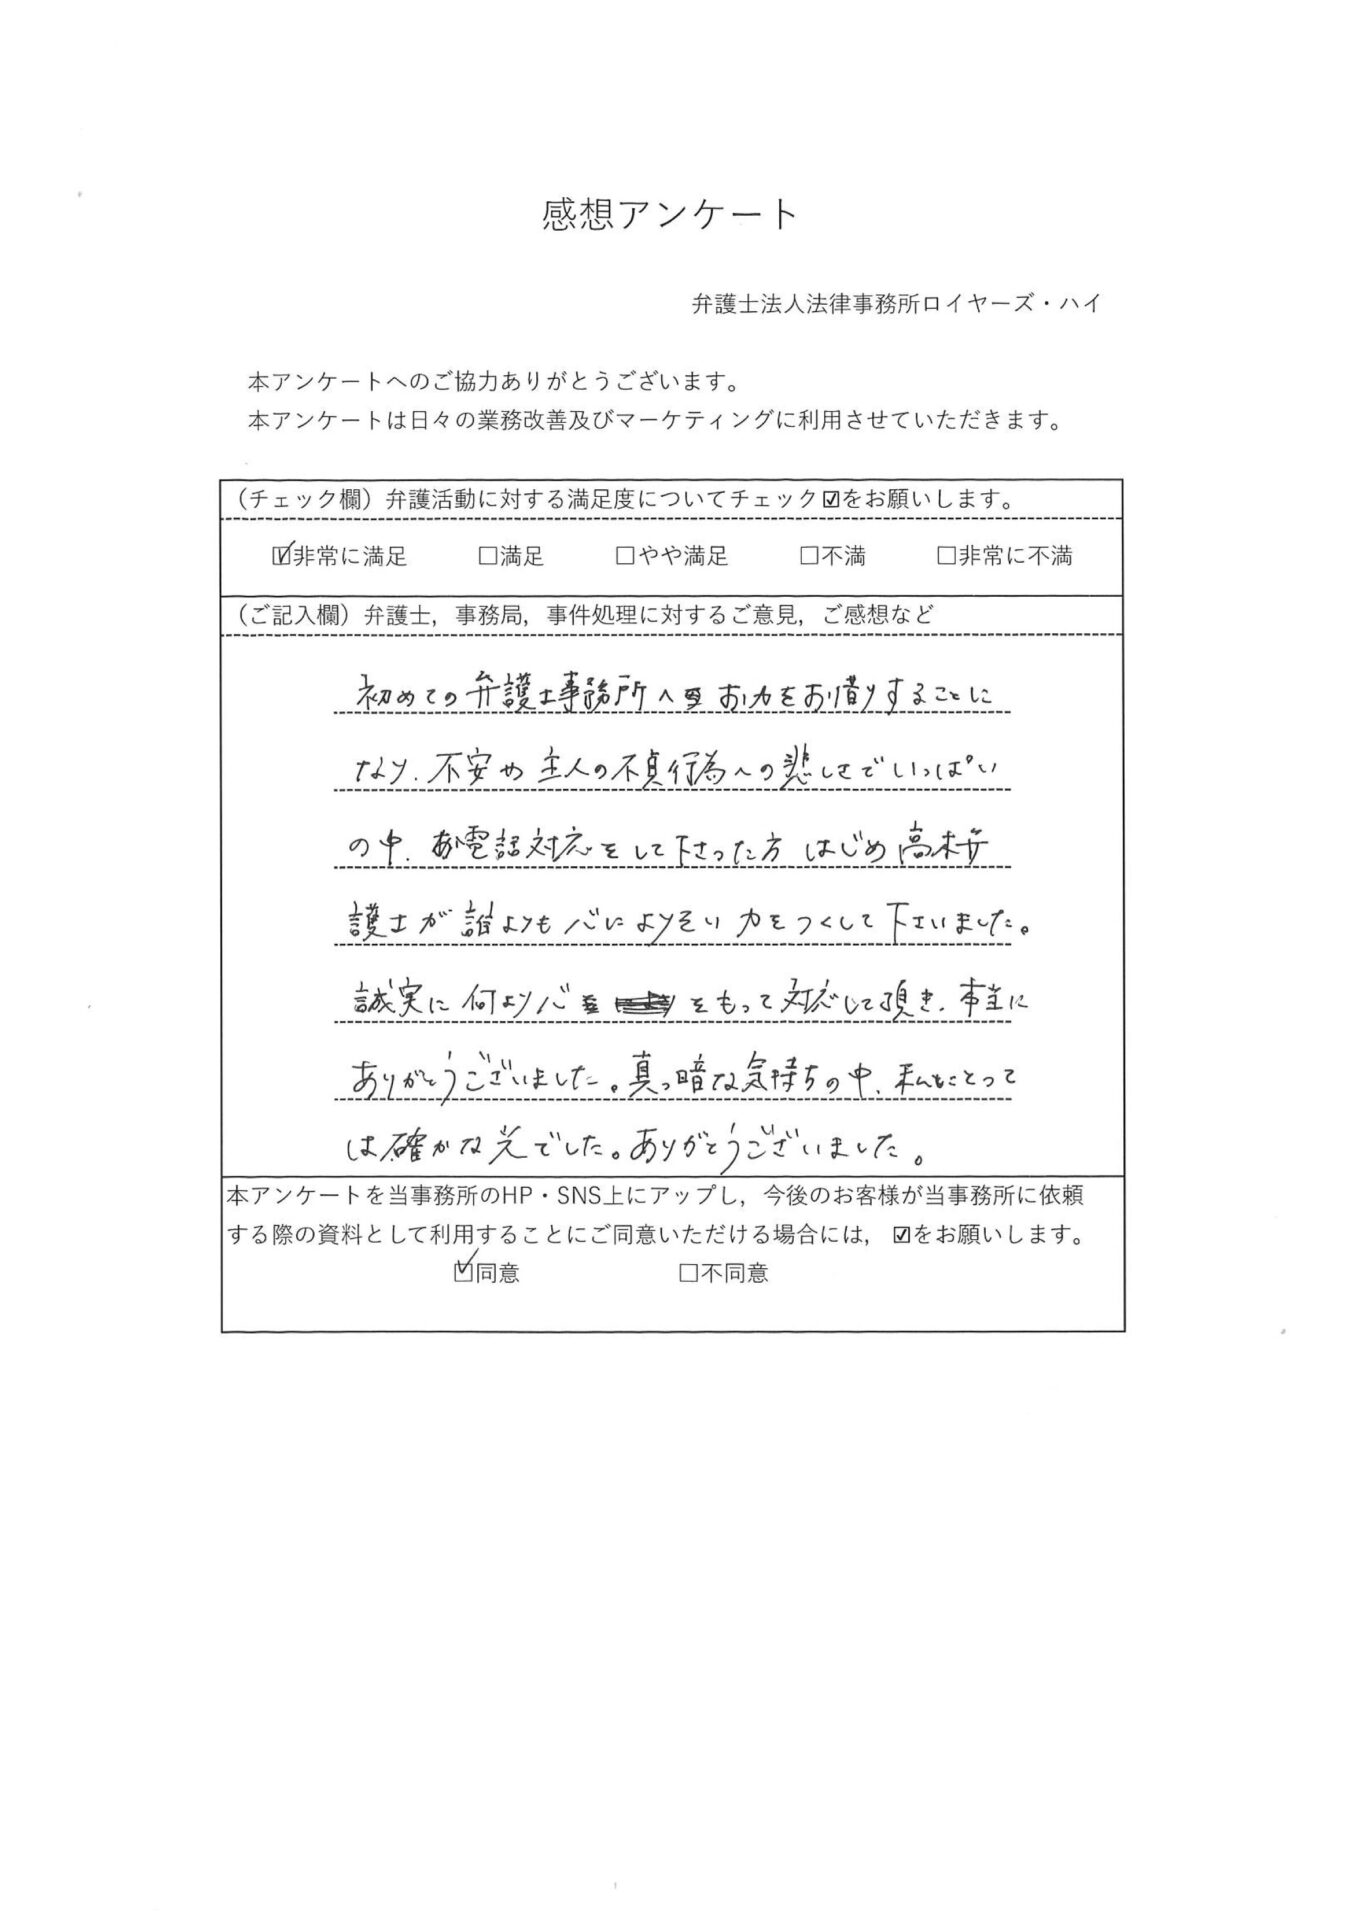 感想アンケート
弁護士法人法律事務所ロイヤーズ・ハイ
本アンケートへのご協力ありがとうございます。
本アンケートは日々の業務改善及びマーケティングに利用させていただきます。
（チェック欄）弁護活動に対する満足度についてチェック☑をお願いします。
☑非常に満足 □満足 □やや満足 □不満 □非常に不満
（ご記入欄）弁護士，事務局，事件処理に対するご意見，ご感想など
初めての弁護士事務所へ お力をお借りすることに
なり、不安や主人の不貞行為への悲しさでいっぱい
の中、お電話対応をして下さった方 はじめ 高木弁
護士が誰よりも心によりそい 力をつくして下さいました。
誠実に 何より心 をもって対応して頂き、本当に
ありがとうございました。真っ暗な気持ちの中、私にとって
は確かな光でした。ありがとうございました。
本アンケートを当事務所のHP・SNS上にアップし，今後のお客様が当事務所に依頼
する際の資料として利用することにご同意いただける場合には，☑をお願いします。
☑同意 □不同意